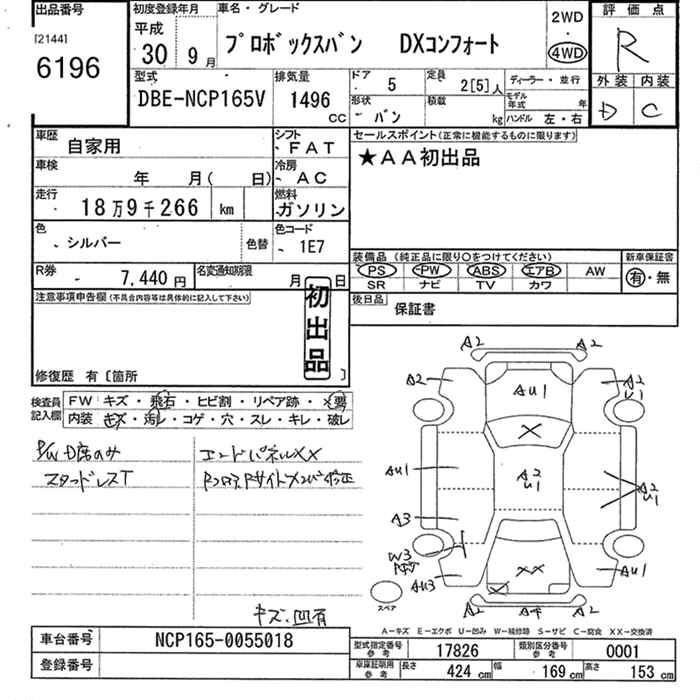 出品番号
[2144]
6196
初度登録年月
平成
30年 9月
車名・グレード
プロボックスバン DXコンフォート
2WD
・
4WD
評価点
R
外装 内装
D C
型式
DBE-NCP165V
排気量
1496
CC
ドア
5
定員
2[5]人
ディーラー・並行
形状
バン
積載
kg
モデル年式 年
ハンドル 左・右
車歴
自家用
シフト
FAT
車検
年 月( 日)
冷房
AC
走行
18万9千266 km
燃料
ガソリン
色
シルバー
色替
色コード
1E7
R券
7,440円
名変通知期限
月 日
セールスポイント(正常に機能するものに限ります)
★AA初出品
装備品 (純正品に限り○をつけてください)
新車保証書
PS PW ABS エアB AW
SR ナビ TV カワ
有・無
後日品
保証書
注意事項申告欄(不具合内容等は具体的に記入して下さい)
初出品
修復歴 有〔箇所 〕
検査員記入欄
FW キズ・飛石・ヒビ割・リペア跡・×要
内装 キズ・汚レ・コゲ・穴・スレ・キレ・破レ
P/W D席のみ
スタッドレスT
エンドパネルXX
キズ・凹有
A2 A2
A2
AU1
A2
U1
AU1
A2
U1
A2
U1
A3
W3
AU3
XX
AU1
A2 A4 A2
スペア
A―キズ E―エクボ U―凹み W―補修跡 S―サビ C―腐食 XX―交換済
車台番号
NCP165-0055018
登録番号
型式指定番号 参考
17826
類別区分番号 参考
0001
車庫証明用 参考
長さ 424 cm 幅 169 cm 高さ 153 cm